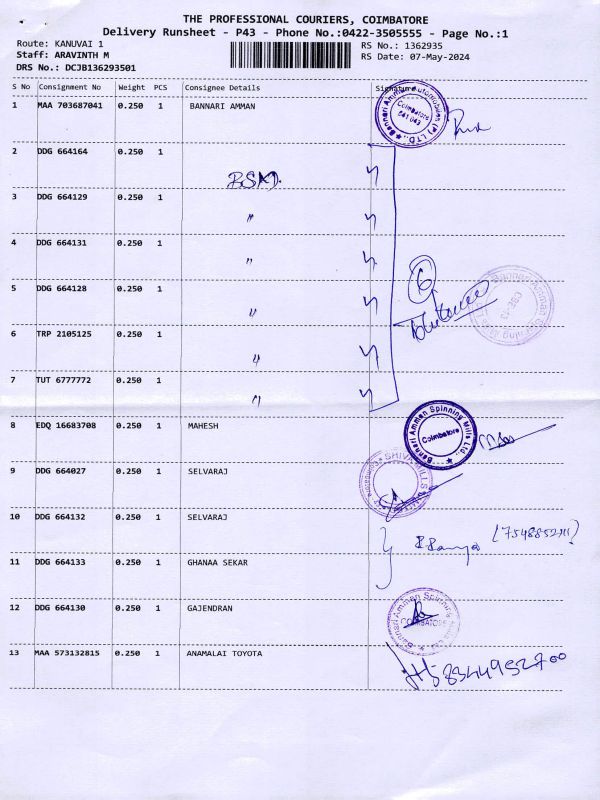 THE PROFESSIONAL COURIERS, COIMBATORE
Delivery Runsheet - P43 - Phone No.:0422-3505555 - Page No.:1
Route: KANUVAI 1
RS No.: 1362935
Staff: ARAVINTH M
RS Date: 07-May-2024
DRS No.: DCJB136293501
S No Consignment No Weight PCS Consignee Details Signature
1 MAA 703687041 0.250 1 BANNARI AMMAN
Bannari Amman Automobiles (P) LTD.,
Coimbatore
641 043
2 DDG 664164 0.250 1
3 DDG 664129 0.250 1 "
4 DDG 664131 0.250 1 "
6
5 DDG 664128 0.250 1 "
Bannari Amman Spinning
6 TRP 2105125 0.250 1 "
7 TUT 6777772 0.250 1 "
8 EDQ 16683708 0.250 1 MAHESH
Bannari Amman Spinning Mills Ltd.,
Coimbatore
9 DDG 664027 0.250 1 SELVARAJ
SHIVA MILLS
10 DDG 664132 0.250 1 SELVARAJ
11 DDG 664133 0.250 1 GHANAA SEKAR
12 DDG 664130 0.250 1 GAJENDRAN
Bannari Amman Spinning
COIMBATORE
13 MAA 573132815 0.250 1 ANAMALAI TOYOTA
8344952700